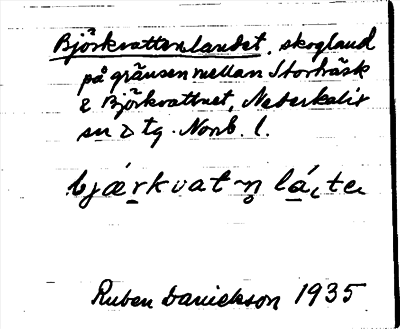 Björkvattenlandet, skogland
på gränsen mellan Storträsk
& Björkvattnet, Nederkalix
sn tg. Norrb. l.
bjǽrkvatn̥ lá̱ˌte
Ruben Danielson 1935